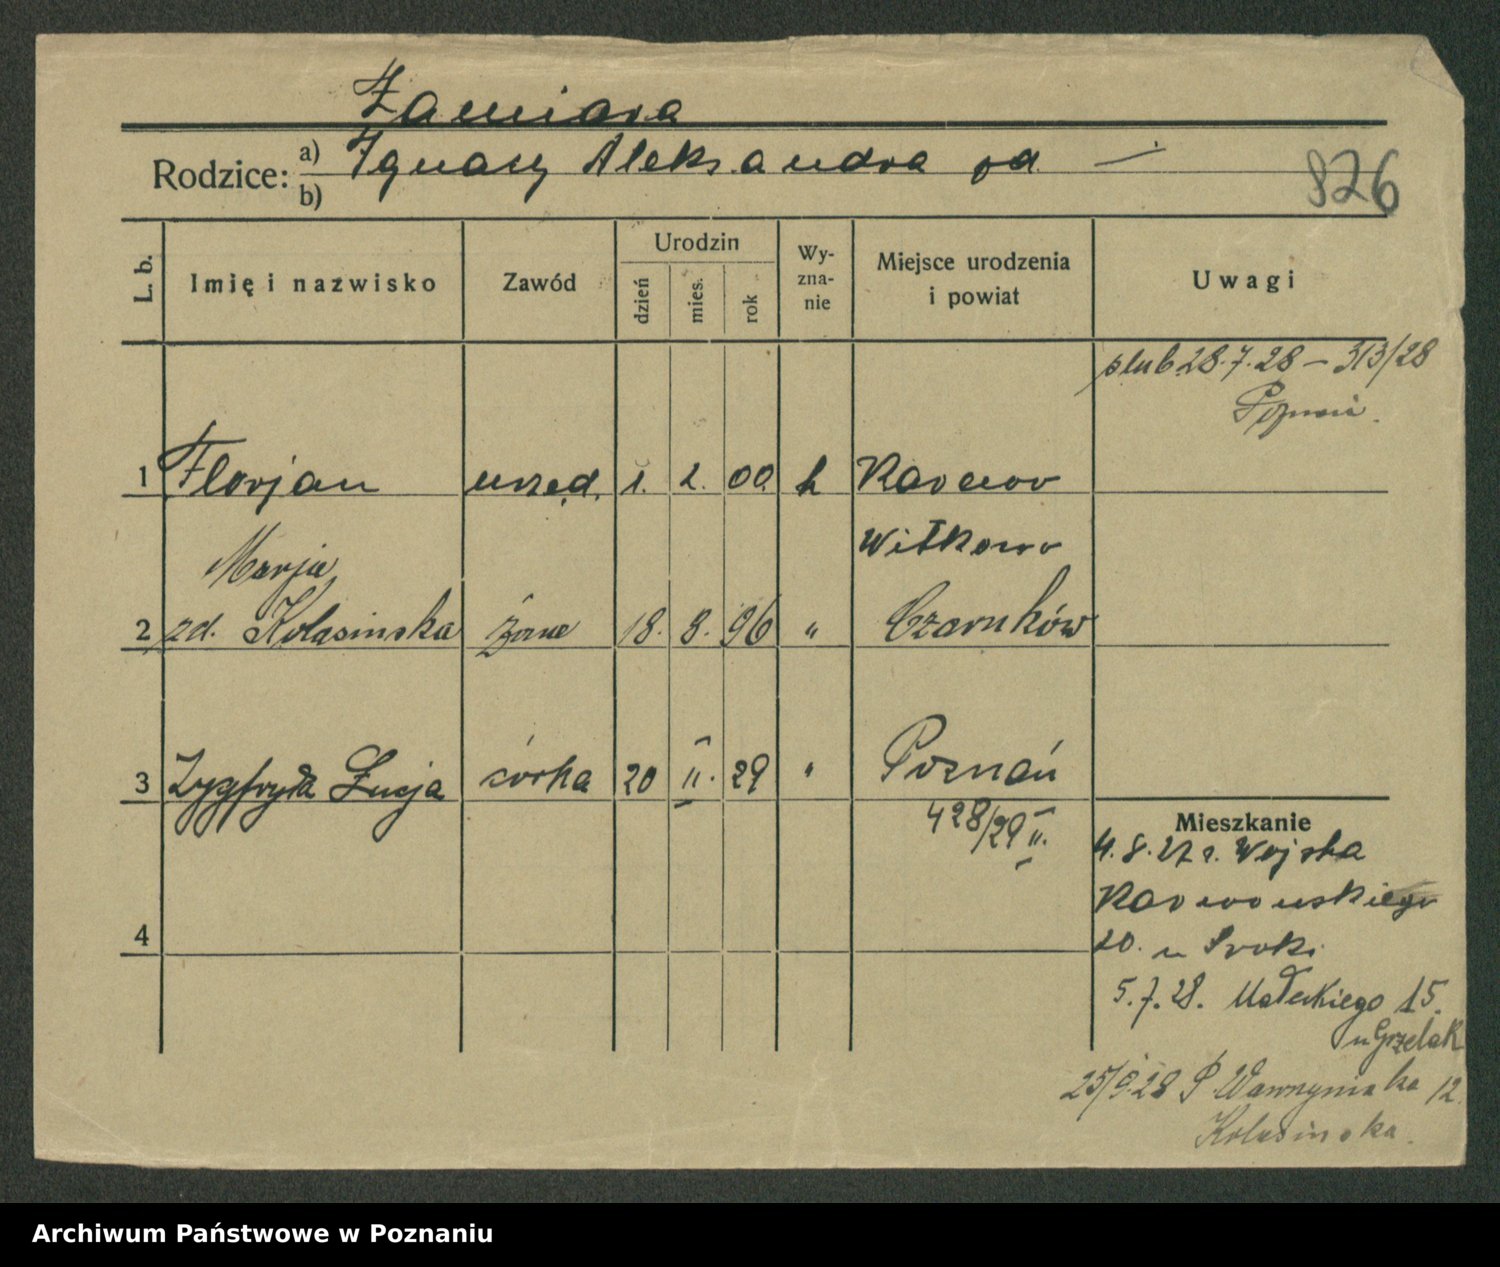 Zamiara
Rodzice: a) Ignacy Aleksandra zd. —
b)
826
L. b.
Imię i nazwisko
Zawód
Urodzin
dzień
mies.
rok
Wy-
zna-
nie
Miejsce urodzenia
i powiat
Uwagi
ślub 28.7.28 – 313/28
Poznań.
1 Florjan urzęd. 1. 2. 00 k
Witkowo
Marja
2 zd. Kolasinska żona 18. 8. 96 " Czarnków
3 Zygfryda Łucja córka 20 II. 29 " Poznań
428/29 II.
Mieszkanie
4.8.27 r. Wojska
20. u Sroki
4
5.7.28. Małeckiego 15.
u Grzelak
25/9.28 P. Wawrzyniaka 12.
Kolasinska.
Archiwum Państwowe w Poznaniu